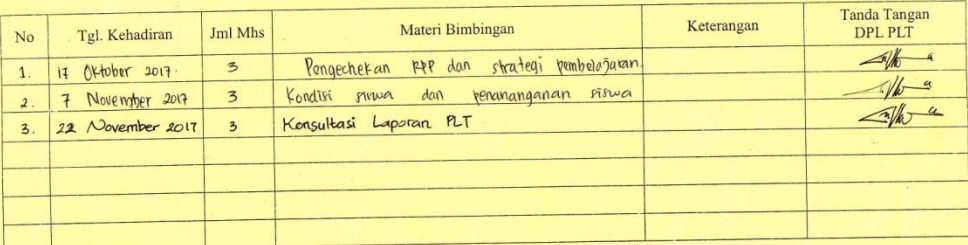 No Tgl. Kehadiran Jml Mhs Materi Bimbingan Keterangan Tanda Tangan
DPL PLT
1. 17 Oktober 2017. 3 Pengechekan RPP dan strategi pembelajaran.
2. 7 November 2017 3 Kondisi siswa dan penanganan siswa
3. 22 November 2017 3 Konsultasi Laporan PLT